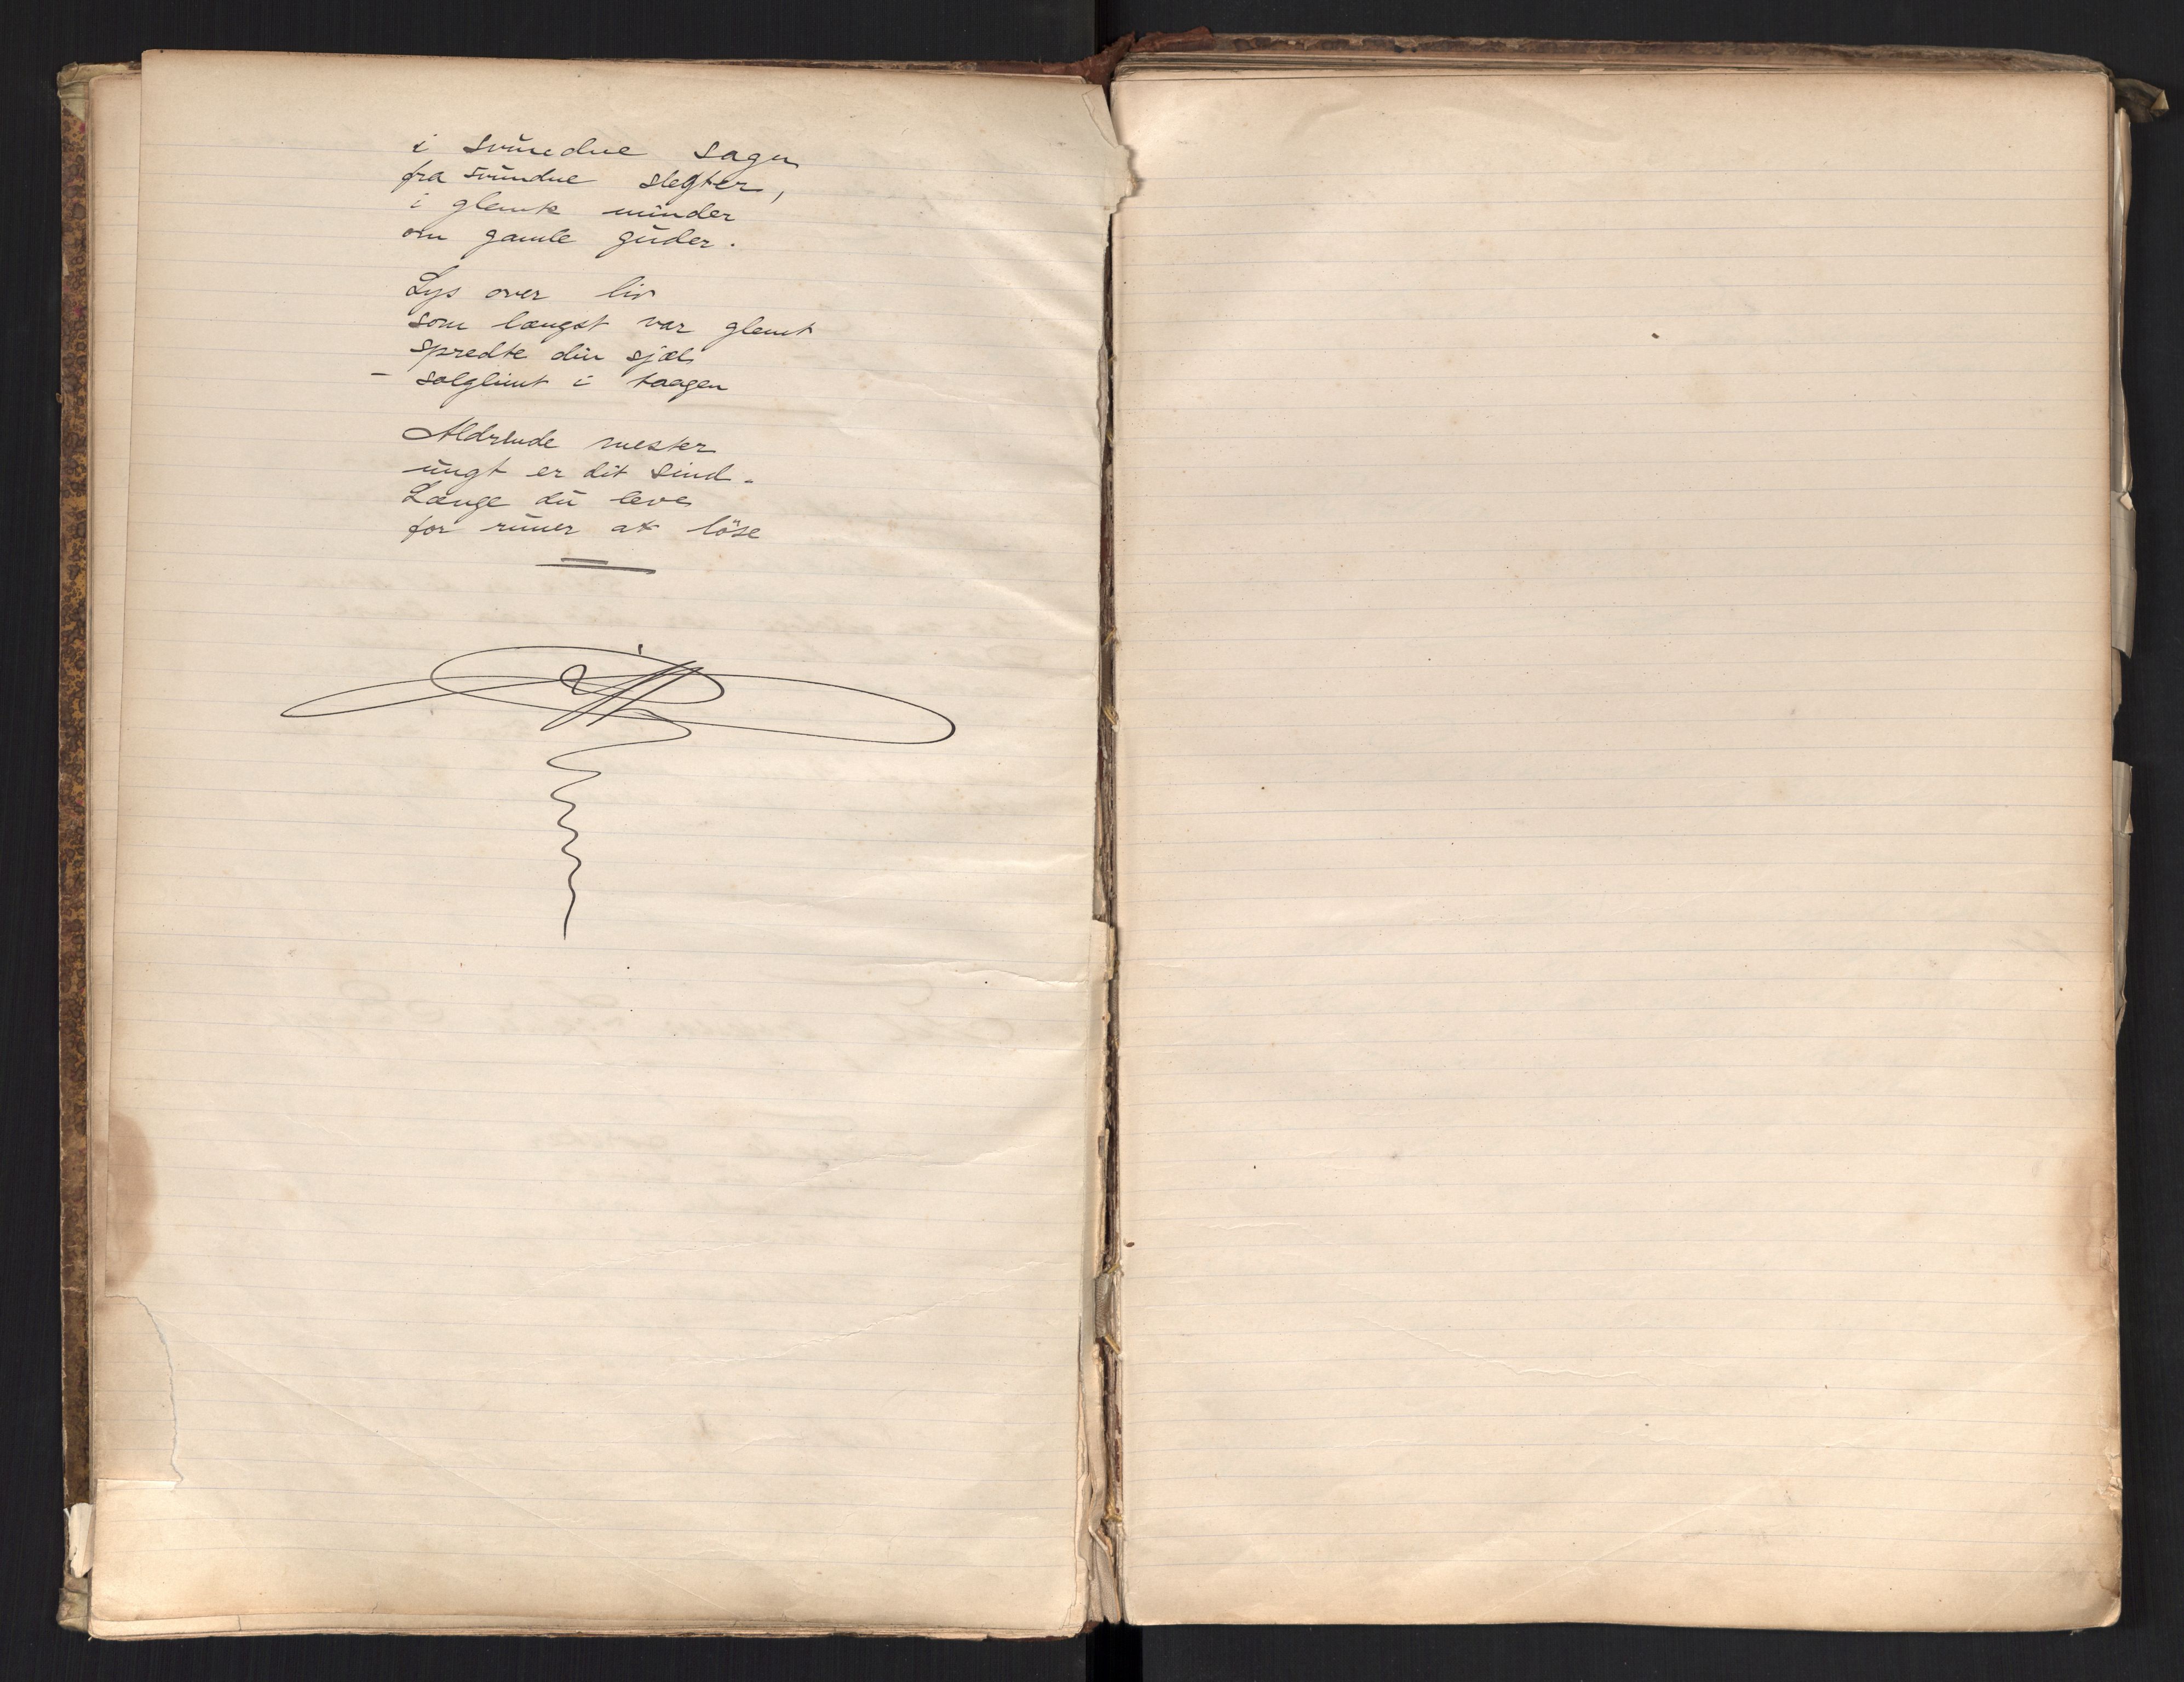 i svundne sagn
fra svundne slegter,
i glemte minder
om gamle guder.
Lys over liv
som længst var glemt
spredte din sjæl
- solglimt i taagen
Aldrende mester
ungt er dit sind.
Længe du leve
for runer at löse